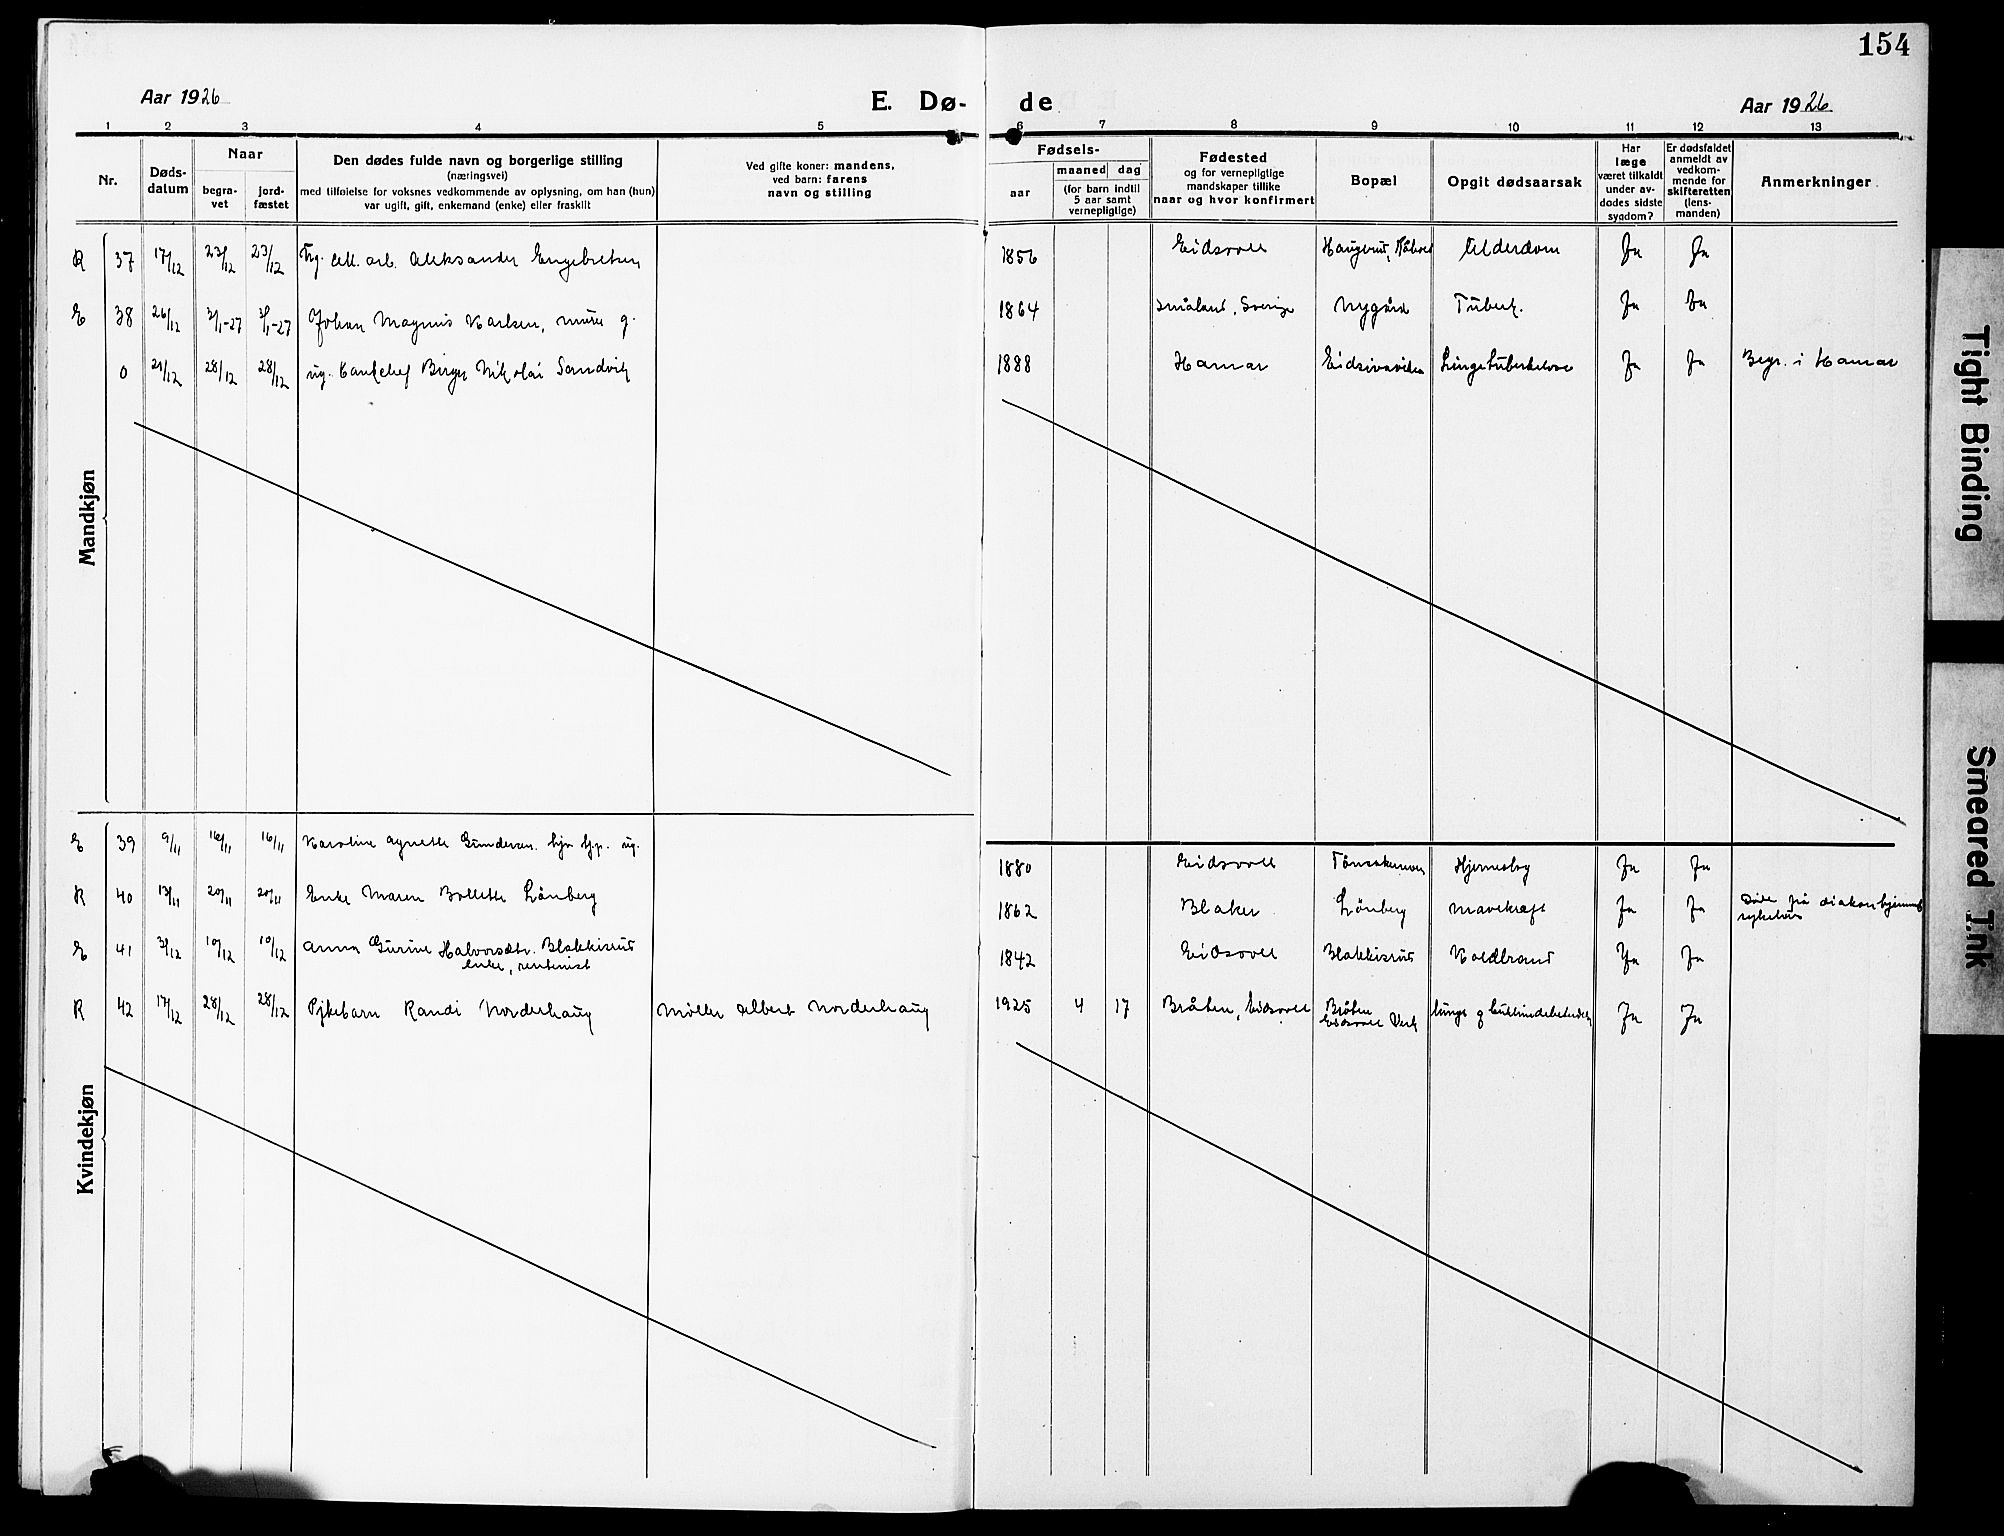 154
Aar 1926
E. Dø-
de
Aar 1926
1 2 3 4 5 6 7 8 9 10 11 12 13
Nr.
Døds-
datum
Naar
begra-
vet
jord-
fæstet
Den dødes fulde navn og borgerlige stilling
(næringsvei)
med tilføielse for voksnes vedkommende av oplysning, om han (hun)
var ugift, gift, enkemand (enke) eller fraskilt
Ved gifte koner: mandens,
ved barn: farens
navn og stilling
Fødsels-
aar
maaned dag
(for barn indtil
5 aar samt
vernepligtige)
Fødested
og for vernepligtige
mandskaper tillike
naar og hvor konfirmert
Bopæl
Opgit dødsaarsak
Har
læge
været tilkaldt
under av-
dødes sidste
sygdom?
Er dødsfaldet
anmeldt av
vedkom-
mende for
skifteretten
(lens-
manden)
Anmerkninger
Mandkjøn
R 37 17/12 23/12 23/12 arb. Aleksander Engebretsen 1856 Eidsvoll Haugerud, Alderdom Ja Ja
E 38 26/12 3/1-27 3/1-27 Johan Magnus Karlsen, murer g. 1864 Småland, Sverige Nygård Tuberk. Ja Ja
0 21/12 28/12 28/12 ug. Birger Nikolai Sandvik 1888 Hamar Lungetuberkulose Ja Ja Begr. i Hamar
Kvindekjøn
E 39 9/11 16/11 16/11 Karoline Agnethe Gundersen. ug. 1880 Eidsvoll Ja Ja
R 40 13/11 20/11 20/11 Enke Maren Bollette Lönberg 1862 Blaker Lönberg Mavekræft Ja Ja Döde på diakonhjemmets
sykehus
E 41 3/12 10/12 10/12 Anna Gurine Halvorsdtr. Blakkisrud
enke, rentenist 1842 Eidsvoll Blakkisrud Koldbrand Ja Ja
R 42 17/12 28/12 28/12 Pikebarn Randi Norderhaug Møller Albert Norderhaug 1925 4 17 Bråten, Eidsvoll Bråten
Eidsvoll Verk Ja Ja
Tight Binding
Smeared Ink